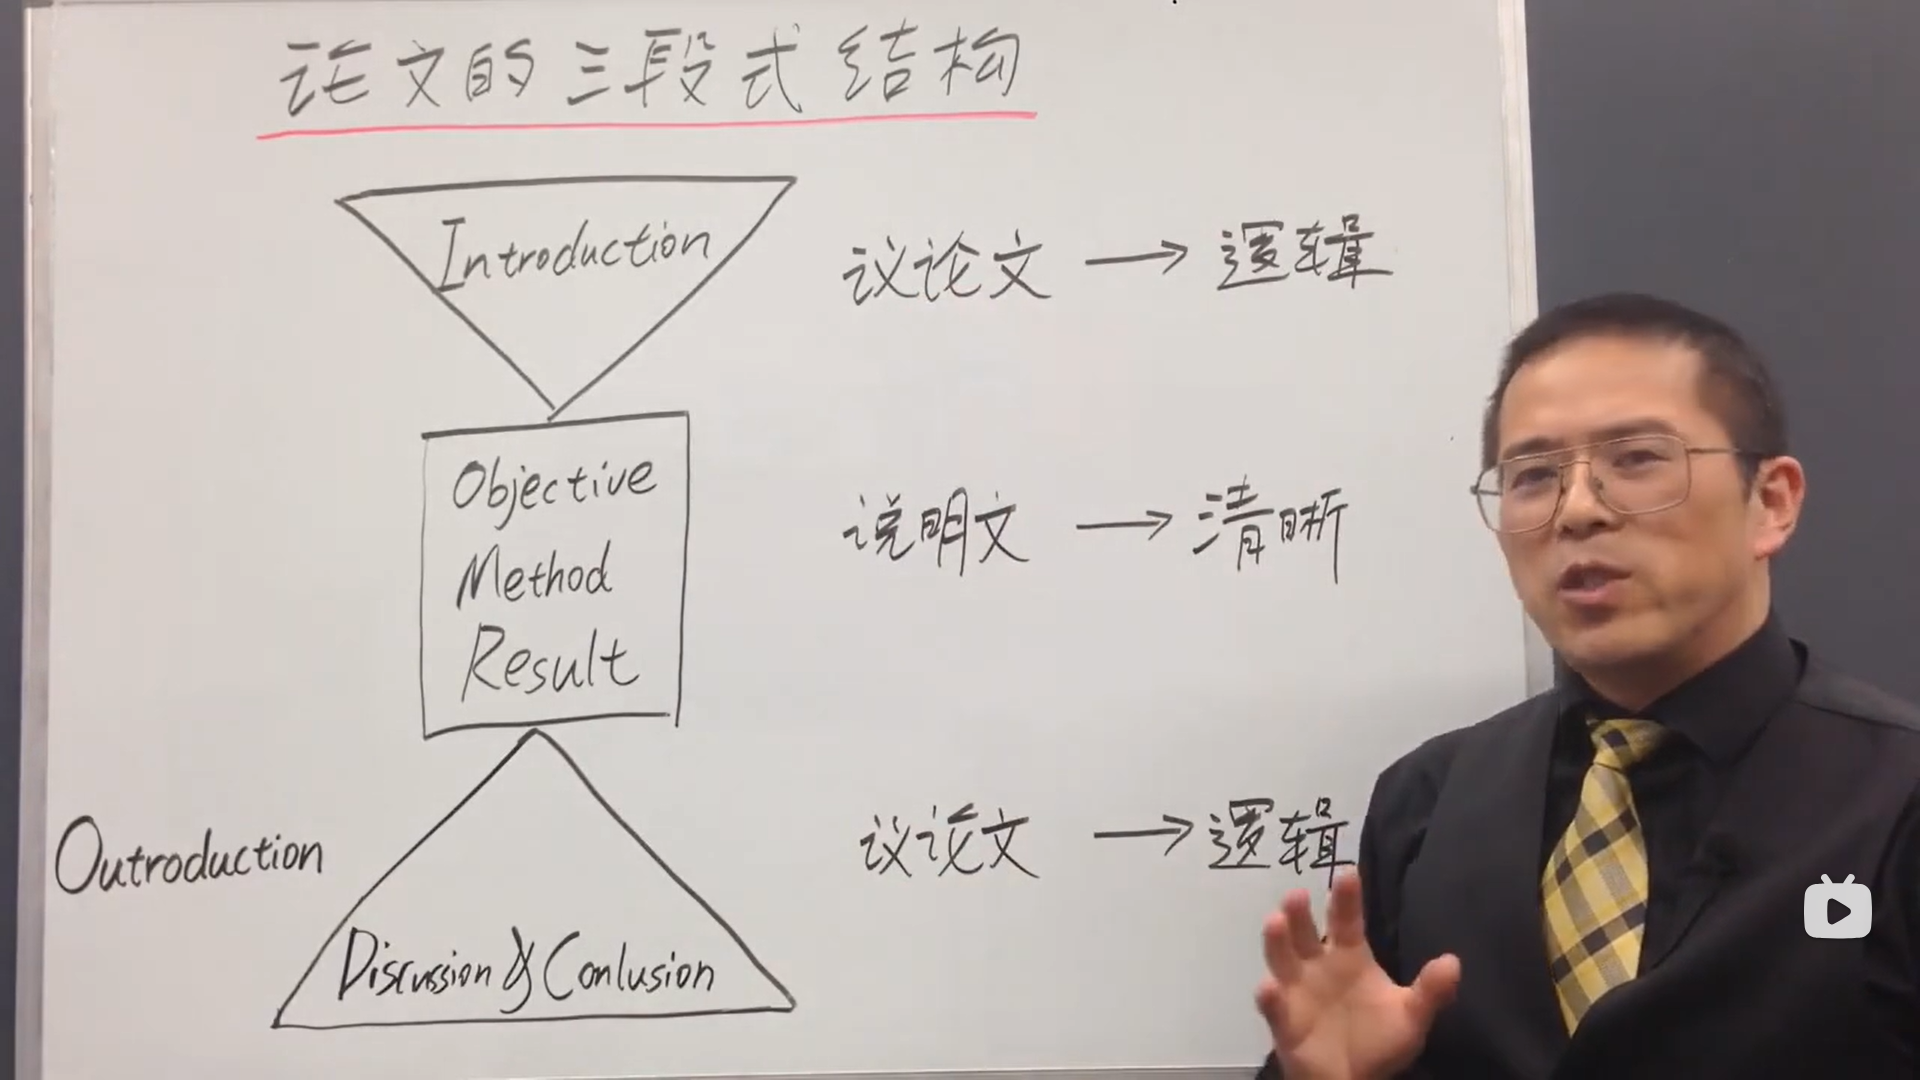 论文的三段式结构
Introduction
议论文 → 逻辑
Objective
Method
Result
说明文 → 清晰
Outroduction
议论文 → 逻辑
Discussion & Conlusion